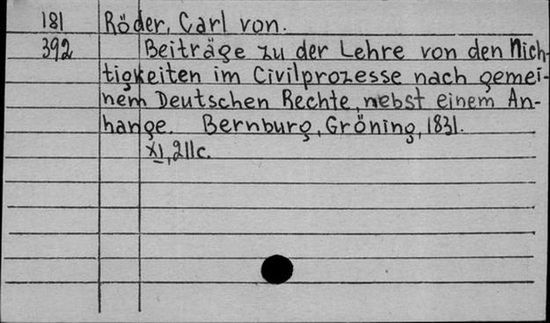 181 Röder, Carl von.
392 Beiträge zu der Lehre von den Nich-
tigkeiten im Civilprozesse nach gemei-
nem Deutschen Rechte, nebst einem An-
hange. Bernburg, Gröning, 1831.
XI, 211c.